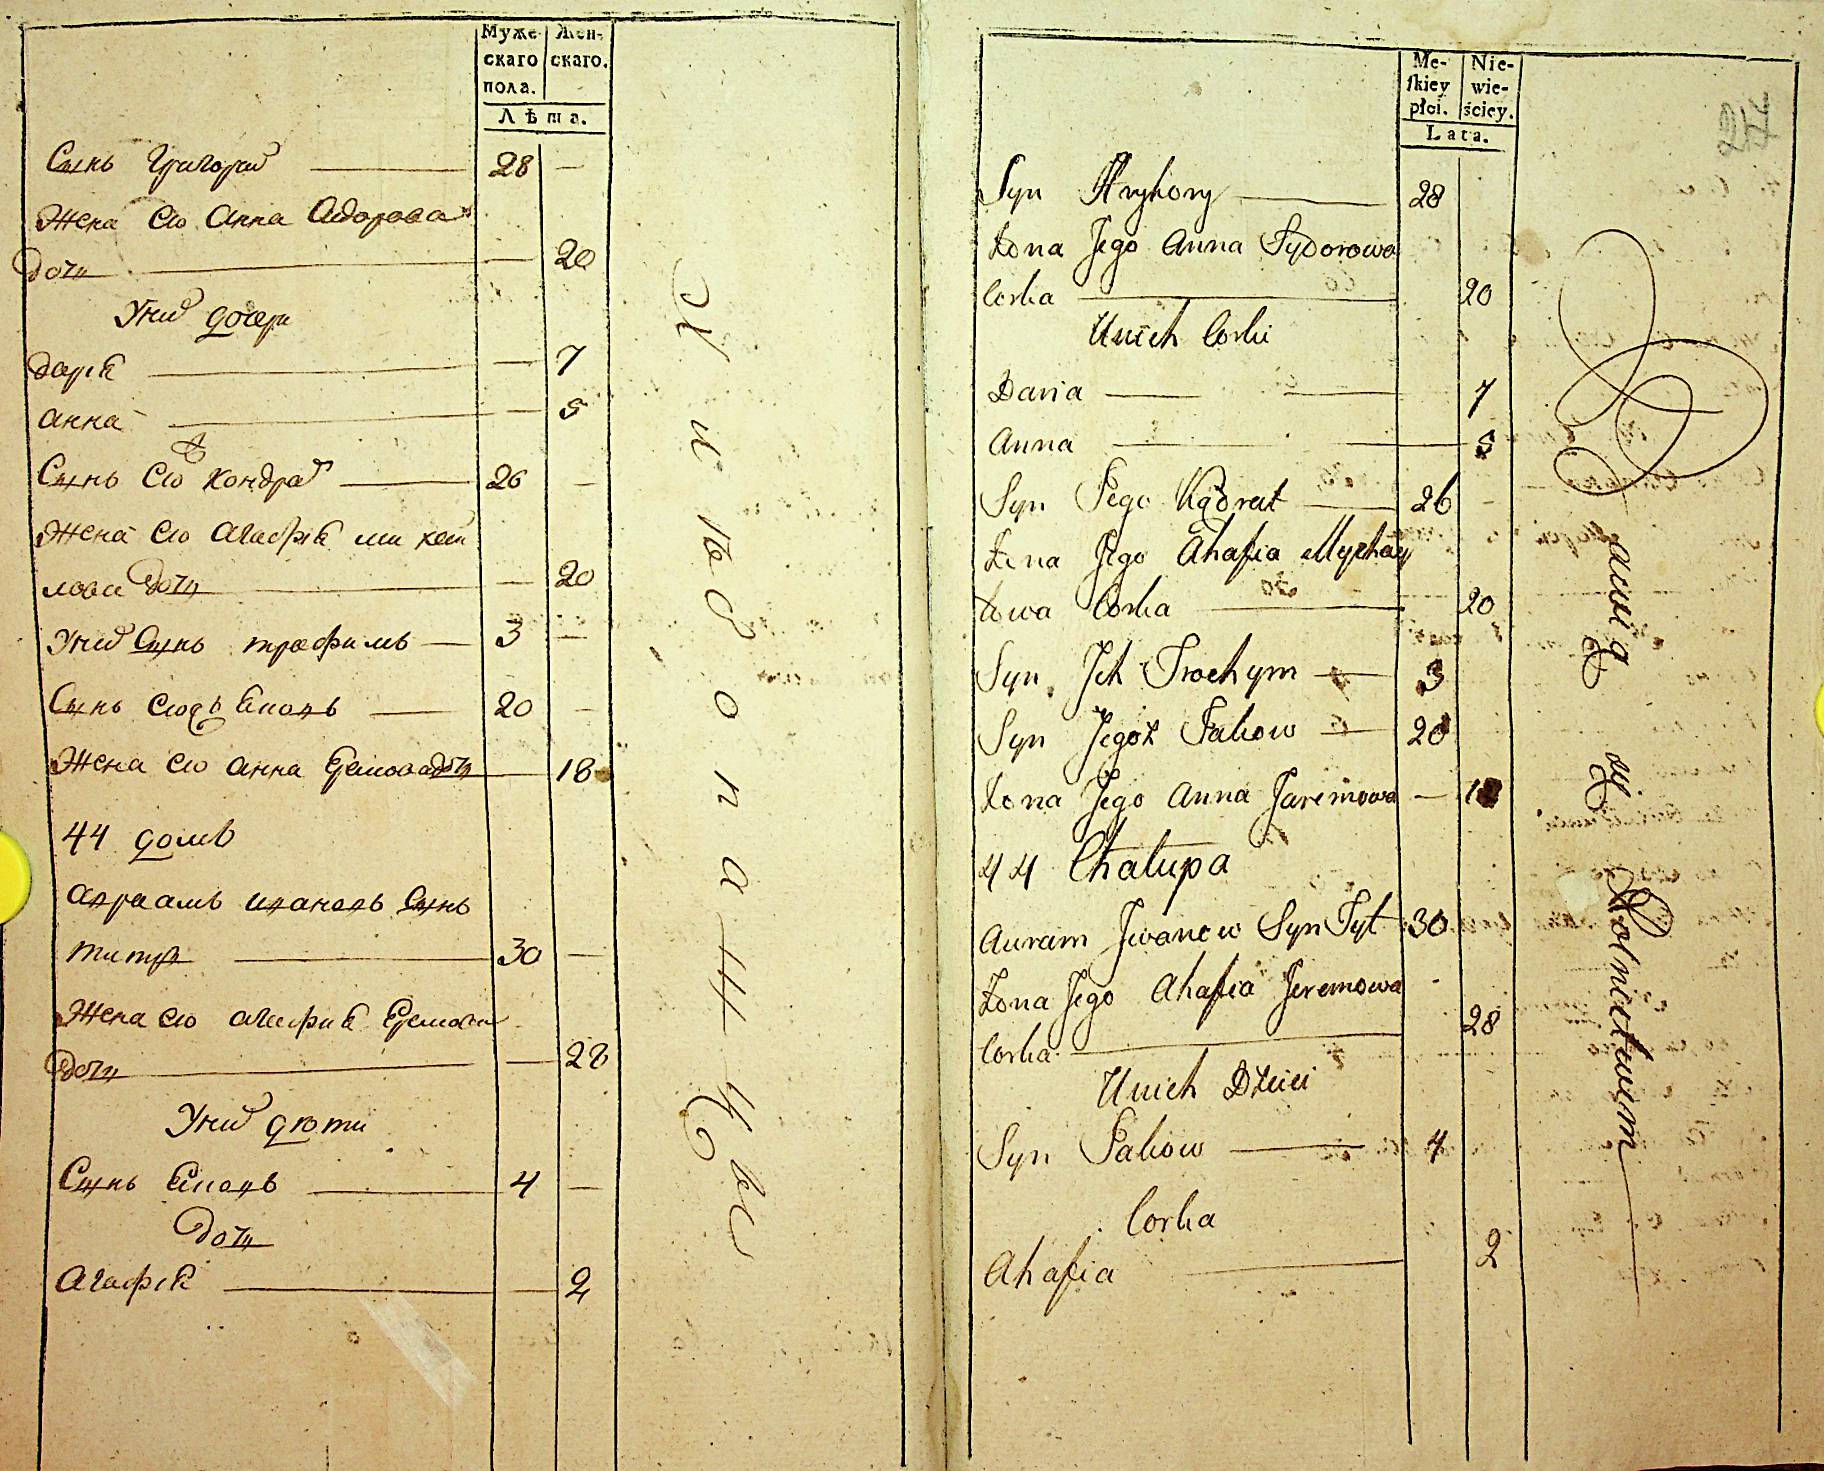 Муже-
скаго
пола.
Жен-
скаго.
Лѣта.
Сынъ Григорий 28 —
Жена Его Анна Сидорова
Дочь — 20
У них дочери
Дария — 7
Анна — 5
Сынъ Его Кондрат 26 —
Жена Его Агафия Михай
лова Дочь — 20
У них Сынъ Трофимъ 3 —
Сынъ Егожъ Яковъ 20 —
Жена Его Анна Еремова дочь — 18
44 домъ
Авраамъ Ивановъ Сынъ
Титъ 30 —
Жена Его Агафия Еремова
Дочь — 28
У них дети
Сынъ Яковъ 4 —
Дочь
Агафия — 2
Me-
skiey
płci.
Nie-
wie-
ściey.
Lata.
42
Syn Hryhory 28
Zona Jego Anna Sydorowa
Corka 20
Unich Corki
Daria 7
Anna 5
Syn Jego Kądrat 26 -
Zona Jego Ahafia Mychay
łowa Corka 20
Syn Jch Trochym 3
Syn Jegoż Jakow 20
Zona Jego Anna Jaremowa — 18
44 Chałupa
Auram Jwanow Syn Tyt 30
Zona Jego Ahafia Jeremowa
Corka 28
Unich Dzieci
Syn Jakow 4
Corka
Ahafia 2